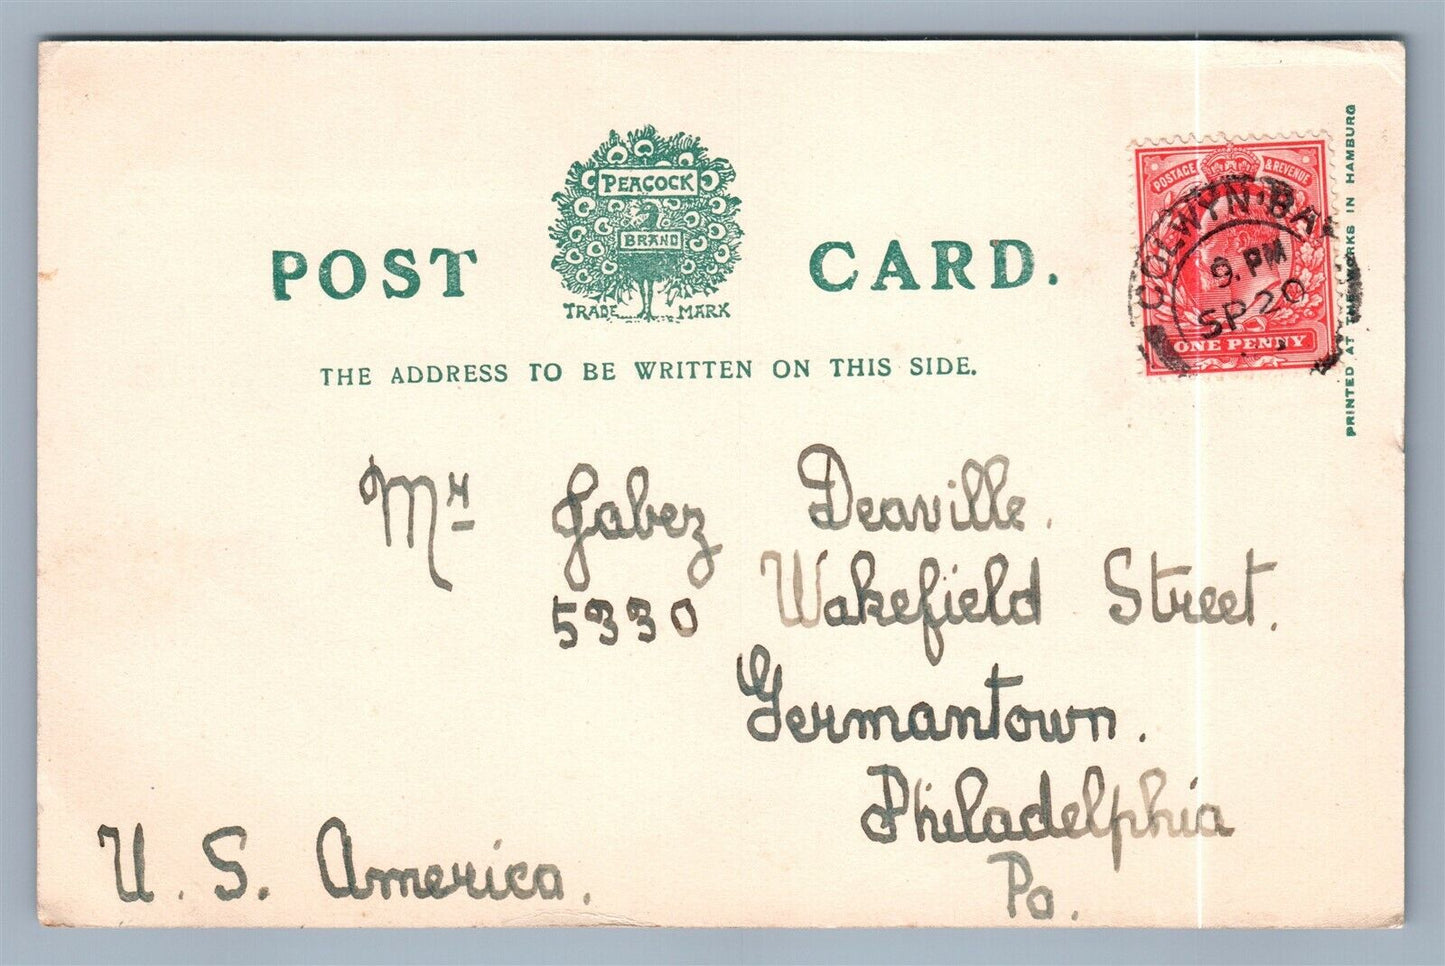 PEACOCK
BRAND
TRADE MARK
POST CARD.
THE ADDRESS TO BE WRITTEN ON THIS SIDE.
POSTAGE & REVENUE
COLWYN·BAY
9. PM
SP 20
ONE PENNY
PRINTED AT THE WORKS IN HAMBURG
Mr Jabez Deaville.
5330 Wakefield Street.
Germantown.
Philadelphia
Pa.
U. S. America.